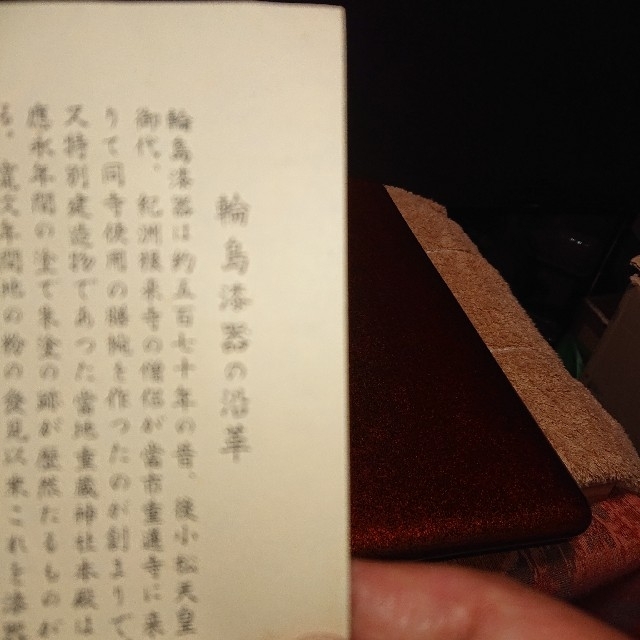 輪島漆器の沿革
輪島漆器は約五百七十年の昔、後小松天皇
御代、紀洲根来寺の僧侶が當市重蓮寺に来
りて同寺使用の膳椀を作つたのが創まりで
又特別建造物であつた當地重蔵神社本殿は
應永年間の塗で朱塗の扉が歴然たるものが
る。寛文年間地の粉の発見以来これを